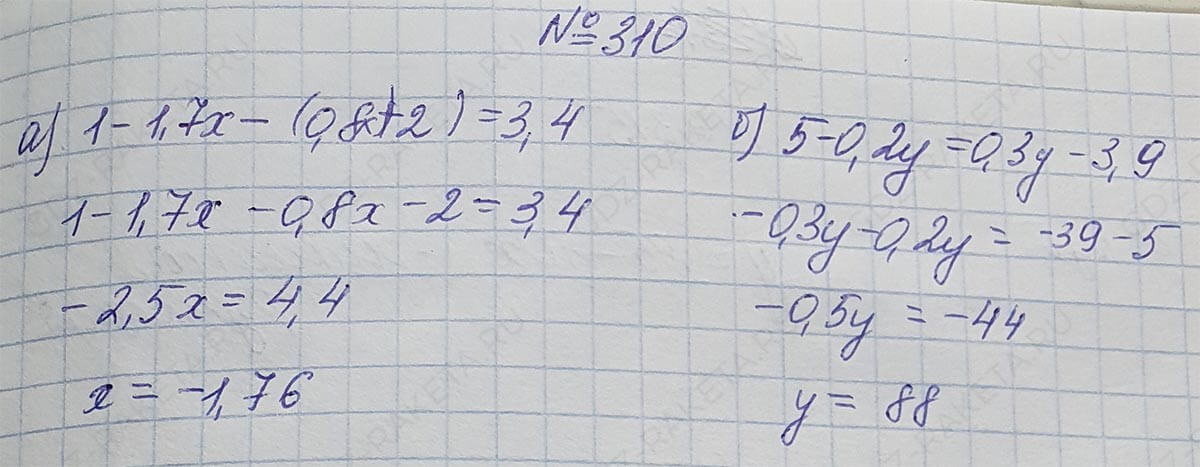 №310
а) 1-1,7x-(0,8x+2)=3,4
1-1,7x-0,8x-2=3,4
-2,5x=4,4
x=-1,76
б) 5-0,2y=0,3y-3,9
-0,3y-0,2y=-39-5
-0,5y=-44
y=88